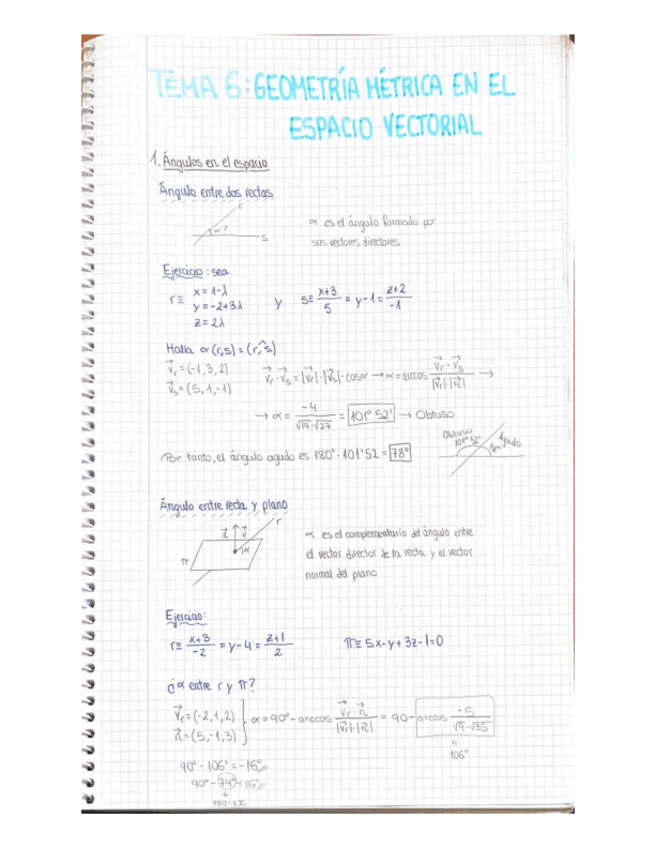 TEMA 6: GEOMETRÍA MÉTRICA EN EL
ESPACIO VECTORIAL
1. Ángulos en el espacio
Ángulo entre dos rectas
r
α?
s
α es el ángulo formado por
sus vectores directores
Ejercicio: sea
r ≡ x = 1-λ
y = -2+3λ
z = 2λ
y s ≡ x+3/5 = y-1 = z+2/-1
Halla α (r,s) = (r,^s)
v⃗r = (-1, 3, 2)
v⃗s = (5, 1, -1)
v⃗r · v⃗s = |v⃗r| · |v⃗s| · cosα → α = arccos v⃗r · v⃗s / |v⃗r| · |v⃗s| →
→ α = -4 / √14 · √27 = 101º 52' → Obtuso
Por tanto, el ángulo agudo es 180º - 101º 52 = 78º
Obtuso
101º 52'
Agudo
Ángulo entre recta y plano
n⃗ v⃗ r
α
π
α es el complementario del ángulo entre
el vector director de la recta y el vector
normal del plano
Ejercicio:
r ≡ x+3/-2 = y-4 = z+1/2
π ≡ 5x-y+3z-1=0
¿α entre r y π?
v⃗r = (-2, 1, 2)
n⃗ = (5, -1, 3)
α = 90º - arccos v⃗r · n⃗ / |v⃗r| · |n⃗| = 90 - arccos -5 / √9 · √35
"
106º
90º - 106º = -16º
90º - 74º = 16º
↓
180-106